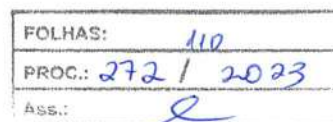 FOLHAS: 110
PROC.: 272 / 2023
Ass.: